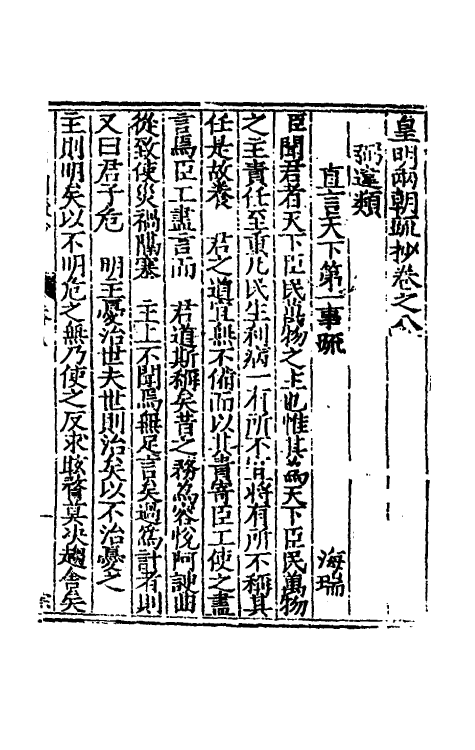 皇明兩朝疏抄卷之八
弼違類
直言天下第一事疏 海瑞
臣聞君者天下臣民萬物之主也惟其為天下臣民萬物
之主責任至重凡民生利病一有所不宜將有所不稱其
任是故養 君之道宜無不備而以其責寄臣工使之盡
言焉臣工盡言而 君道斯稱矣昔之務為容悅阿諛曲
從致使災禍隔塞 主上不聞焉無足言矣過為計者則
又曰君子危 明主憂治世夫世則治矣以不治憂之
主則明矣以不明危之無乃使之反求眩瞀莫决趨舍矣